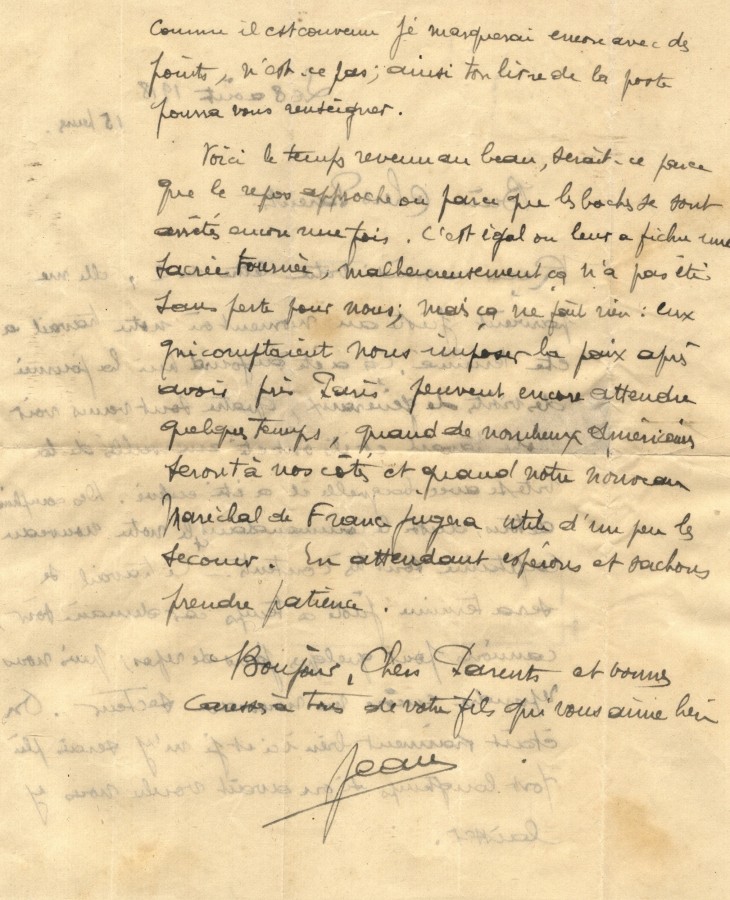 Comme il est convenu je marquerai encore avec des
points, n'est-ce pas; ainsi ton livre de la poste
pourra vous renseigner.
Voici le temps revenu au beau, serait-ce parce
que le repos approche ou parce que les boches se sont
arrêtés encore une fois. C'est égal on leur a fichu une
sacrée tournée, malheureusement ça n'a pas été
sans perte pour nous; mais ça ne fait rien: eux
qui comptaient nous imposer la paix après
avoir pris Paris peuvent encore attendre
quelques temps, quand de nombreux Américains
seront à nos côtés et quand notre nouveau
Maréchal de France jugera utile d'un peu les
secouer. En attendant espérons et sachons
prendre patience.
Bonjour, Chers Parents et bonnes
caresses à tous de votre fils qui vous aime bien
Jean